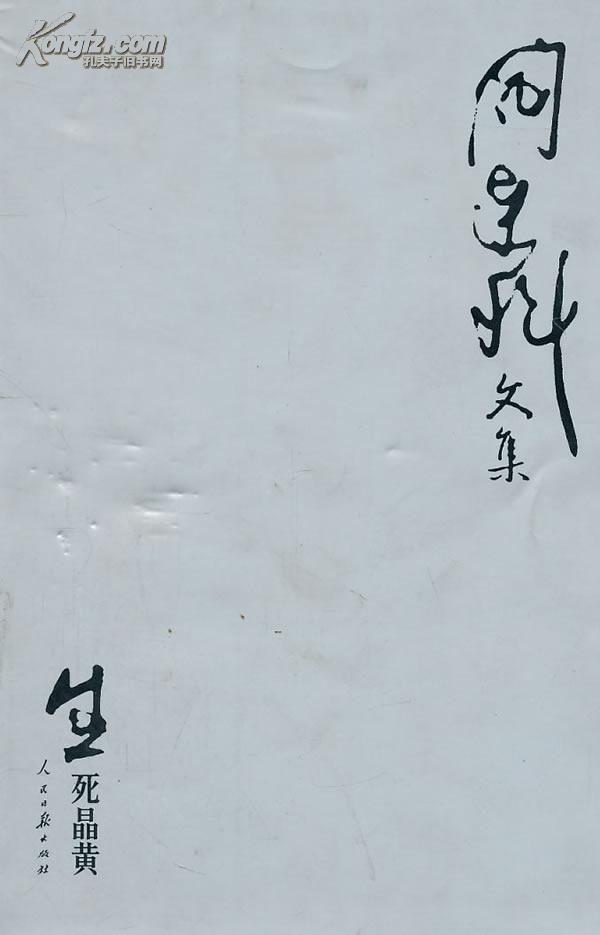 Kongfz.com
孔夫子旧书网
阎连科
文集
生死晶黄
人民日报出版社